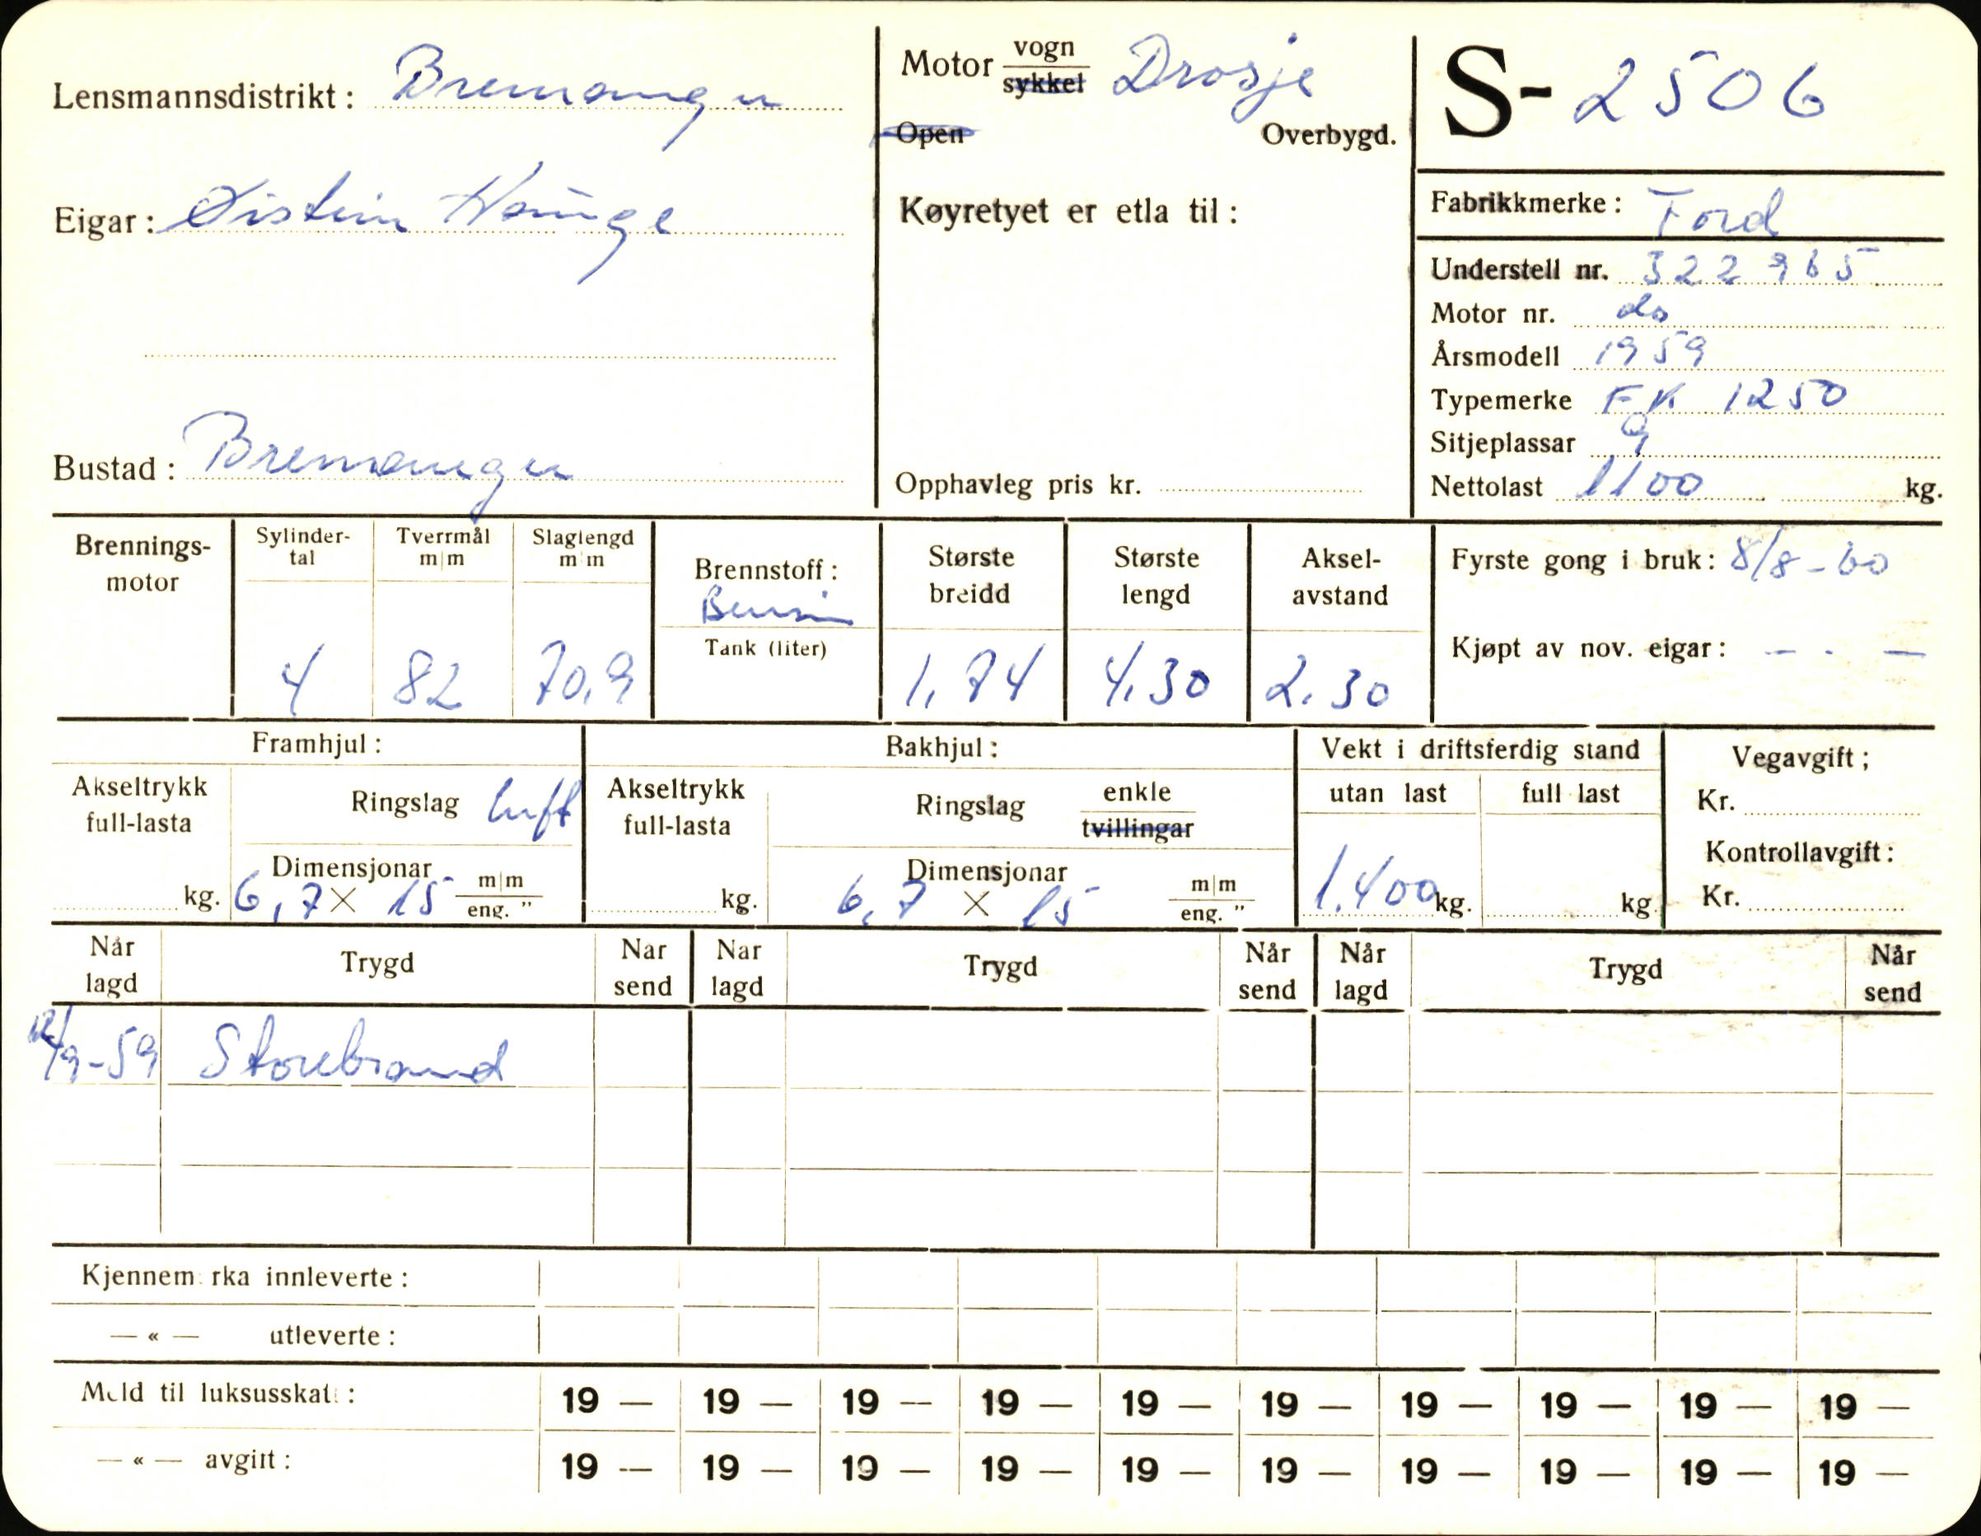 Lensmannsdistrikt: Bremangen
Eigar: Øistein Hauge
Bustad: Bremangen
Motor vogn
sykkel
Drosje
Open Overbygd.
Køyretyet er etla til:
Opphavleg pris kr.
S- 2506
Fabrikkmerke: Ford
Understell nr. 322965
Motor nr. do
Årsmodell 1959
Typemerke FK 1250
Sitjeplassar 9
Nettolast 1100 kg.
Brennings-
motor
Sylinder-
tal
4
Tverrmål
m|m
82
Slaglengd
m m
70,9
Brennstoff:
Bensin
Tank (liter)
Største
breidd
1,74
Største
lengd
4,30
Aksel-
avstand
2.30
Fyrste gong i bruk: 8/8-60
Kjøpt av nov. eigar: — . —
Framhjul:
Akseltrykk
full-lasta
kg.
Ringslag luft
Dimensjonar
6,7 × 15 m|m
eng. "
Bakhjul:
Akseltrykk
full-lasta
kg.
Ringslag enkle
tvillingar
Dimensjonar
6,7 × 15 m|m
eng. "
Vekt i driftsferdig stand
utan last
1.400 kg.
full last
kg
Vegavgift;
Kr.
Kontrollavgift:
Kr.
Når
lagd
Trygd
Nar
send
Nar
lagd
Trygd
Når
send
Når
lagd
Trygd
Når
send
12/9-59 Storebrand
Kjennem rka innleverte:
— « — utleverte:
Meld til luksusskat:
19 — 19 — 19 — 19 — 19 — 19 — 19 — 19 — 19 — 19 —
— « — avgift:
19 — 19 — 19 — 19 — 19 — 19 — 19 — 19 — 19 — 19 —